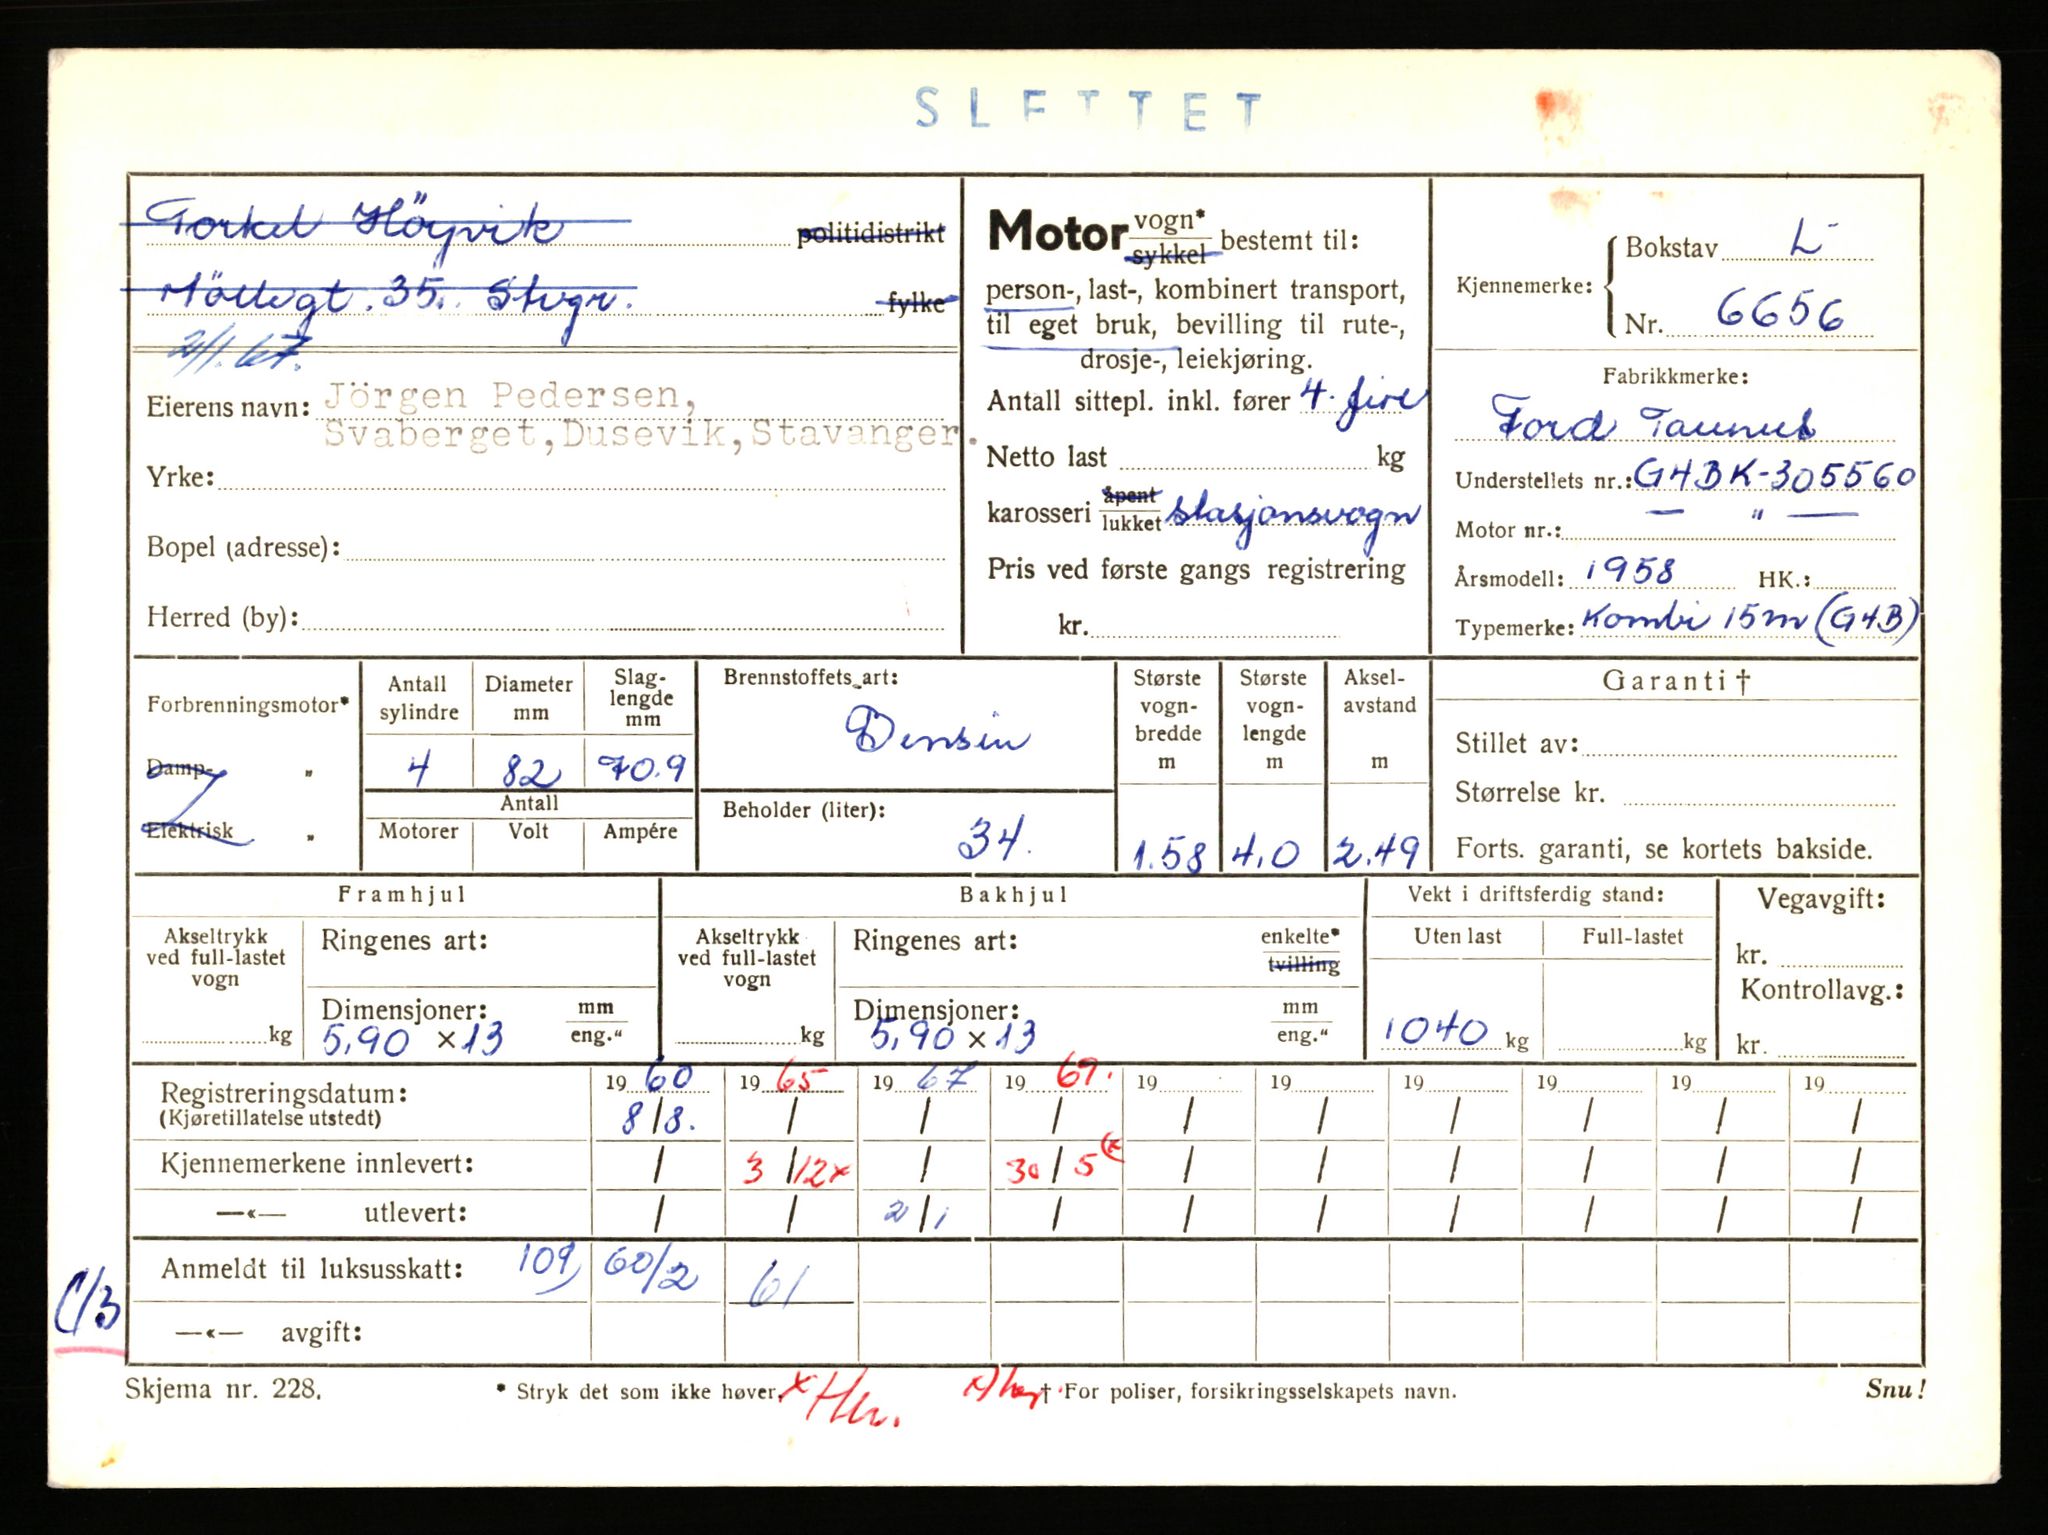 SLETTET
Torkel Höyvik politidistrikt
Möllegt. 35. Stvgr. fylke
2/1.67.
Eierens navn: Jörgen Pedersen,
Svaberget, Dusevik, Stavanger.
Yrke:
Bopel (adresse):
Herred (by):
Motor vogn* sykkel bestemt til:
person-, last-, kombinert transport,
til eget bruk, bevilling til rute-,
drosje-, leiekjøring.
Antall sittepl. inkl. fører 4. fire
Netto last kg
karosseri åpent lukket stasjonsvogn
Pris ved første gangs registrering
kr.
Kjennemerke: Bokstav L-
Nr. 6656
Fabrikkmerke:
Ford Taunus
Understellets nr.: G4BK-305560
Motor nr.: — " —
Årsmodell: 1958 HK.:
Typemerke: Kombi 15m (G4B)
Forbrenningsmotor*
Damp- "
Elektrisk "
Antall sylindre Diameter mm Slag-lengde mm
4 82 70.9
Antall
Motorer Volt Ampére
Brennstoffets art:
Bensin
Beholder (liter):
34.
Største vogn-bredde m Største vogn-lengde m Aksel-avstand m
1.58 4.0 2.49
Garanti †
Stillet av:
Størrelse kr.
Forts. garanti, se kortets bakside.
Framhjul
Akseltrykk ved full-lastet vogn kg
Ringenes art:
Dimensjoner: mm eng."
5,90 x 13
Bakhjul
Akseltrykk ved full-lastet vogn kg
Ringenes art: enkelte* tvilling
Dimensjoner: mm eng."
5,90 x 13
Vekt i driftsferdig stand:
Uten last Full-lastet
1040 kg kg
Vegavgift:
kr.
Kontrollavg.:
kr.
Registreringsdatum: 19 60 19 65 19 67 19 69. 19 19 19 19 19 19
(Kjøretillatelse utstedt) 8/8. / / / / / / / / /
Kjennemerkene innlevert: / 3/12x / 30/5 (x / / / / / /
—«— utlevert: / / 2/1 / / / / / / /
Anmeldt til luksusskatt: 109) 60/2 61
C/3
—«— avgift:
Skjema nr. 228. * Stryk det som ikke høver. x † For poliser, forsikringsselskapets navn. Snu!